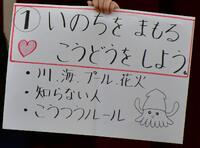 ① いのちを まもる
こうどうを しよう。
・川、海、プール、花火
・知らない人
・こうつうルール